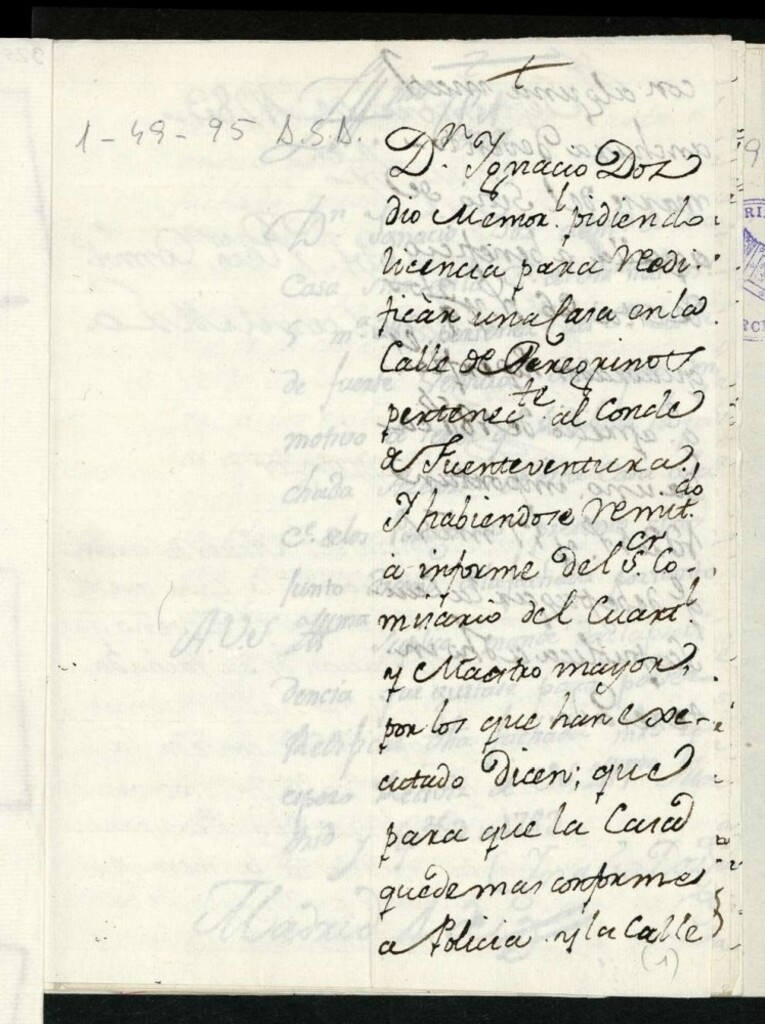 1-49-95 A.S.A.
Dn. Ygnacio Doz
dio Memorl. pidiendo
licencia para Redi
ficàr una Casa en la
Calle de Peregrinos
pertenecte. al Conde
de Fuenteventura.
Y habiendose Remitdo.
à informe del Sr. Co-
misario del Cuartl.
y Maestro mayor,
por los que han exe-
cutado dicen; que
para que la Casa
quede mas conforme
a Policia y la Calle
(1)